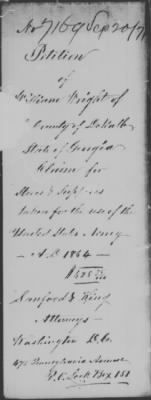 No 7169 Sep 20/71
Petition
of
William Wright of
County of DeKalb
State of Georgia
Claim for
Stores & Supplies
taken for the use of the
United States Army
— A.D. 1864 —
$525
Sanford & King
Attorneys
Washington D.C.
Pennsylvania Avenue
P.O. Lock Box 151